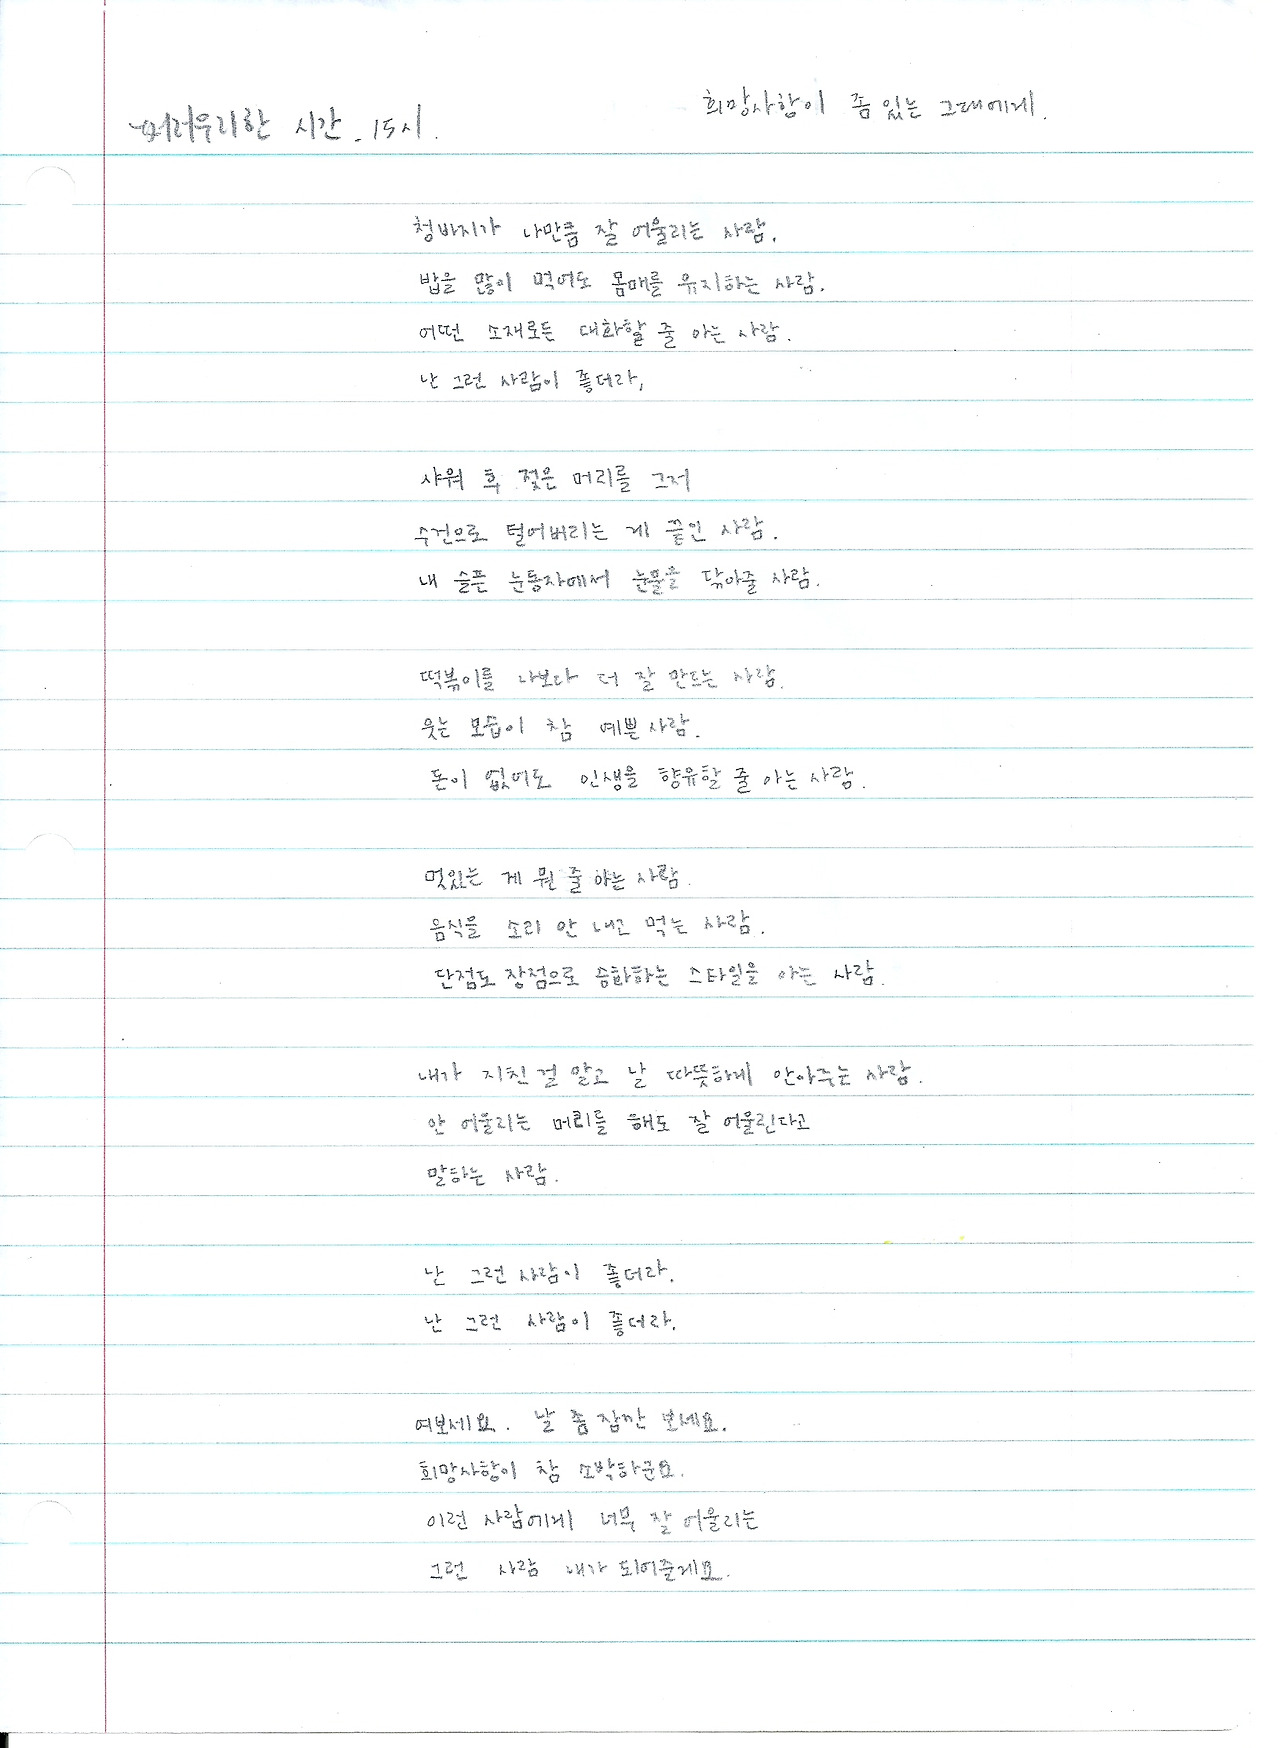 머리우리한 시간 - 15시.
희망사항이 좀 있는 그대에게.
청바지가 나만큼 잘 어울리는 사람.
밥을 많이 먹어도 몸매를 유지하는 사람.
어떤 소재로든 대화할 줄 아는 사람.
난 그런 사람이 좋더라,
샤워 후 젖은 머리를 그저
수건으로 털어버리는 게 끝인 사람.
내 슬픈 눈동자에서 눈물을 닦아줄 사람.
떡볶이를 나보다 더 잘 만드는 사람.
웃는 모습이 참 예쁜 사람.
돈이 없어도 인생을 향유할 줄 아는 사람.
멋있는 게 뭔 줄 아는 사람.
음식을 소리 안 내고 먹는 사람.
단점도 장점으로 승화하는 스타일을 아는 사람.
내가 지친 걸 알고 날 따뜻하게 안아주는 사람.
안 어울리는 머리를 해도 잘 어울린다고
말하는 사람.
난 그런 사람이 좋더라.
난 그런 사람이 좋더라.
여보세요. 날 좀 잠깐 보세요.
희망사항이 참 소박하군요.
이런 사람에게 너무 잘 어울리는
그런 사람 내가 되어줄게요.